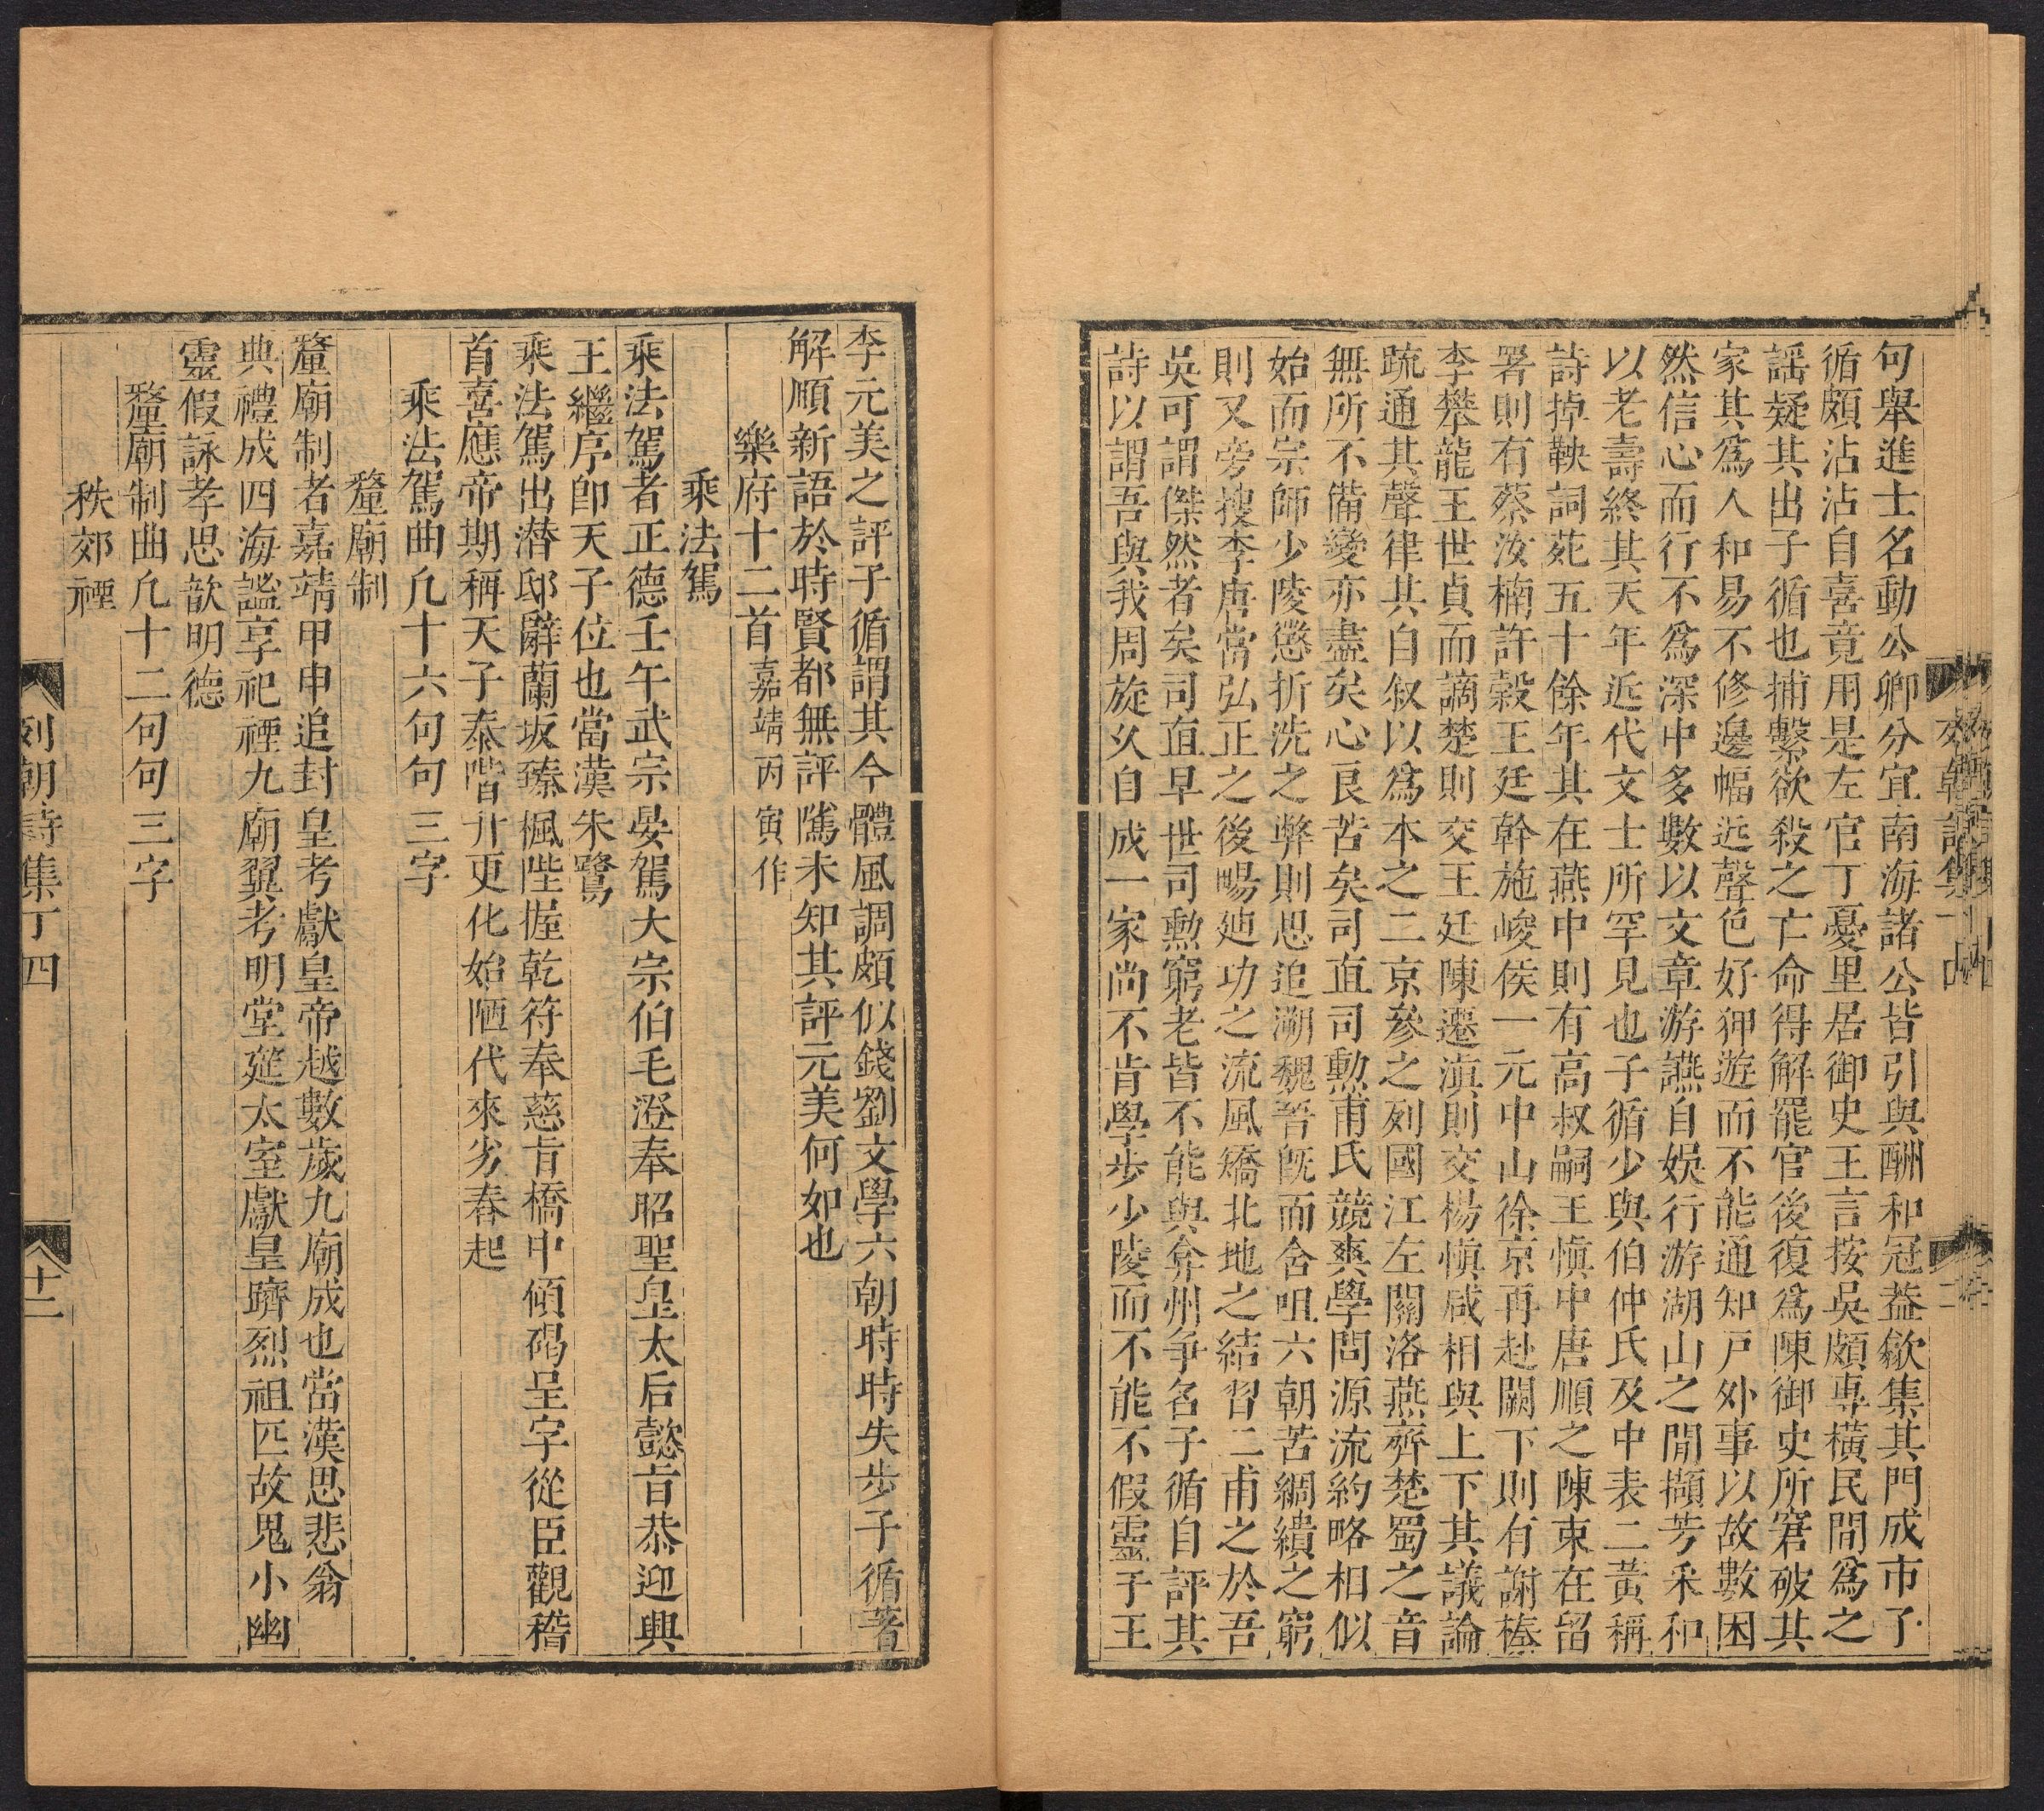 句舉進士名動公卿分宜南海諸公皆引與酬和冠葢歙集其門成市子
循頗沾沾自喜竟用是左官丁憂里居御史王言按吳頗專橫民間爲之
謡疑其出子循也捕繫欲殺之亡命得解罷官後復爲陳御史所窘破其
家其爲人和易不修邊幅远聲色好狎遊而不能通知戸外事以故數困
然信心而行不爲深中多數以文章游讌自娛行游湖山之閒擷芳采和
以老壽終其天年近代文士所罕見也子循少與伯仲氏及中表二黃稱
詩掉鞅詞苑五十餘年其在燕中則有高叔嗣王愼中唐順之陳束在留
署則有蔡汝楠許榖王廷幹施峻侯一元中山徐京再赴闕下則有謝榛
李攀龍王世貞而謫楚則交王廷陳遷滇則交楊愼咸相與上下其議論
疏通其聲律其自叙以爲本之二京叅之列國江左關洛燕齊楚蜀之音
無所不備變亦盡矣心良苦矣司直司勲甫氏競爽學問源流約略相似
始而宗師少陵懲折洗之弊則思追溯魏晉旣而含咀六朝苦綢繢之窮
則又旁搜李唐當弘正之後暢廸功之流風矯北地之結習二甫之於吾
吳可謂傑然者矣司直早世司勲窮老皆不能與弇州争名子循自評其
詩以謂吾與我周旋久自成一家尚不肯學步少陵而不能不假靈于王
李元美之評子循謂其今體風調頗似錢劉文學六朝時時失步子循著
解頤新語於時賢都無評隲未知其評元美何如也
樂府十二首嘉靖丙寅作
乘法駕
乘法駕者正德壬午武宗晏駕大宗伯毛澄奉昭聖皇太后懿旨恭迎興
王繼序卽天子位也當漢朱鷺
乘法駕出潜邸辭蘭坂臻楓陛握乾符奉慈旨橋中傾碣呈字從臣觀稽
首喜應帝期稱天子泰階升更化始陋代來劣舂起
乘法駕曲凢十六句句三字
釐廟制
釐廟制者嘉靖甲申追封皇考獻皇帝越數歲九廟成也當漢思悲翁
典禮成四海謐享祀禋九廟翼考明堂筵太室獻皇躋烈祖匹故鬼小幽
靈假詠孝思歆明德
釐廟制曲凢十二句句三字
秩郊禋
列朝詩集丁四
十二